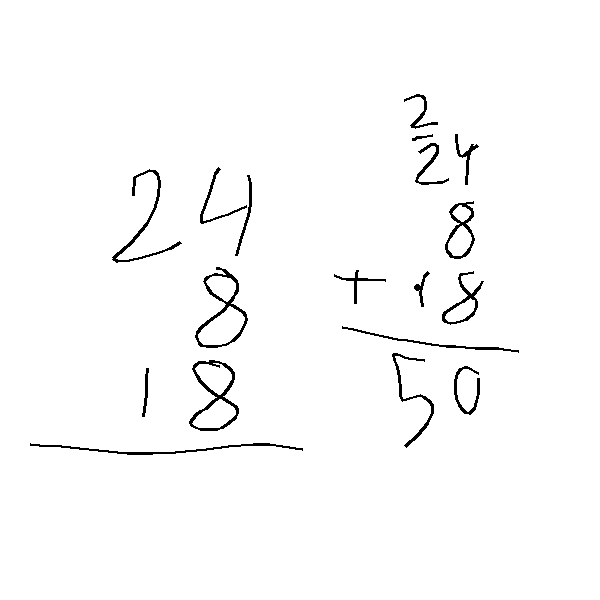 24
8
18
2
24
8
+ 18
50